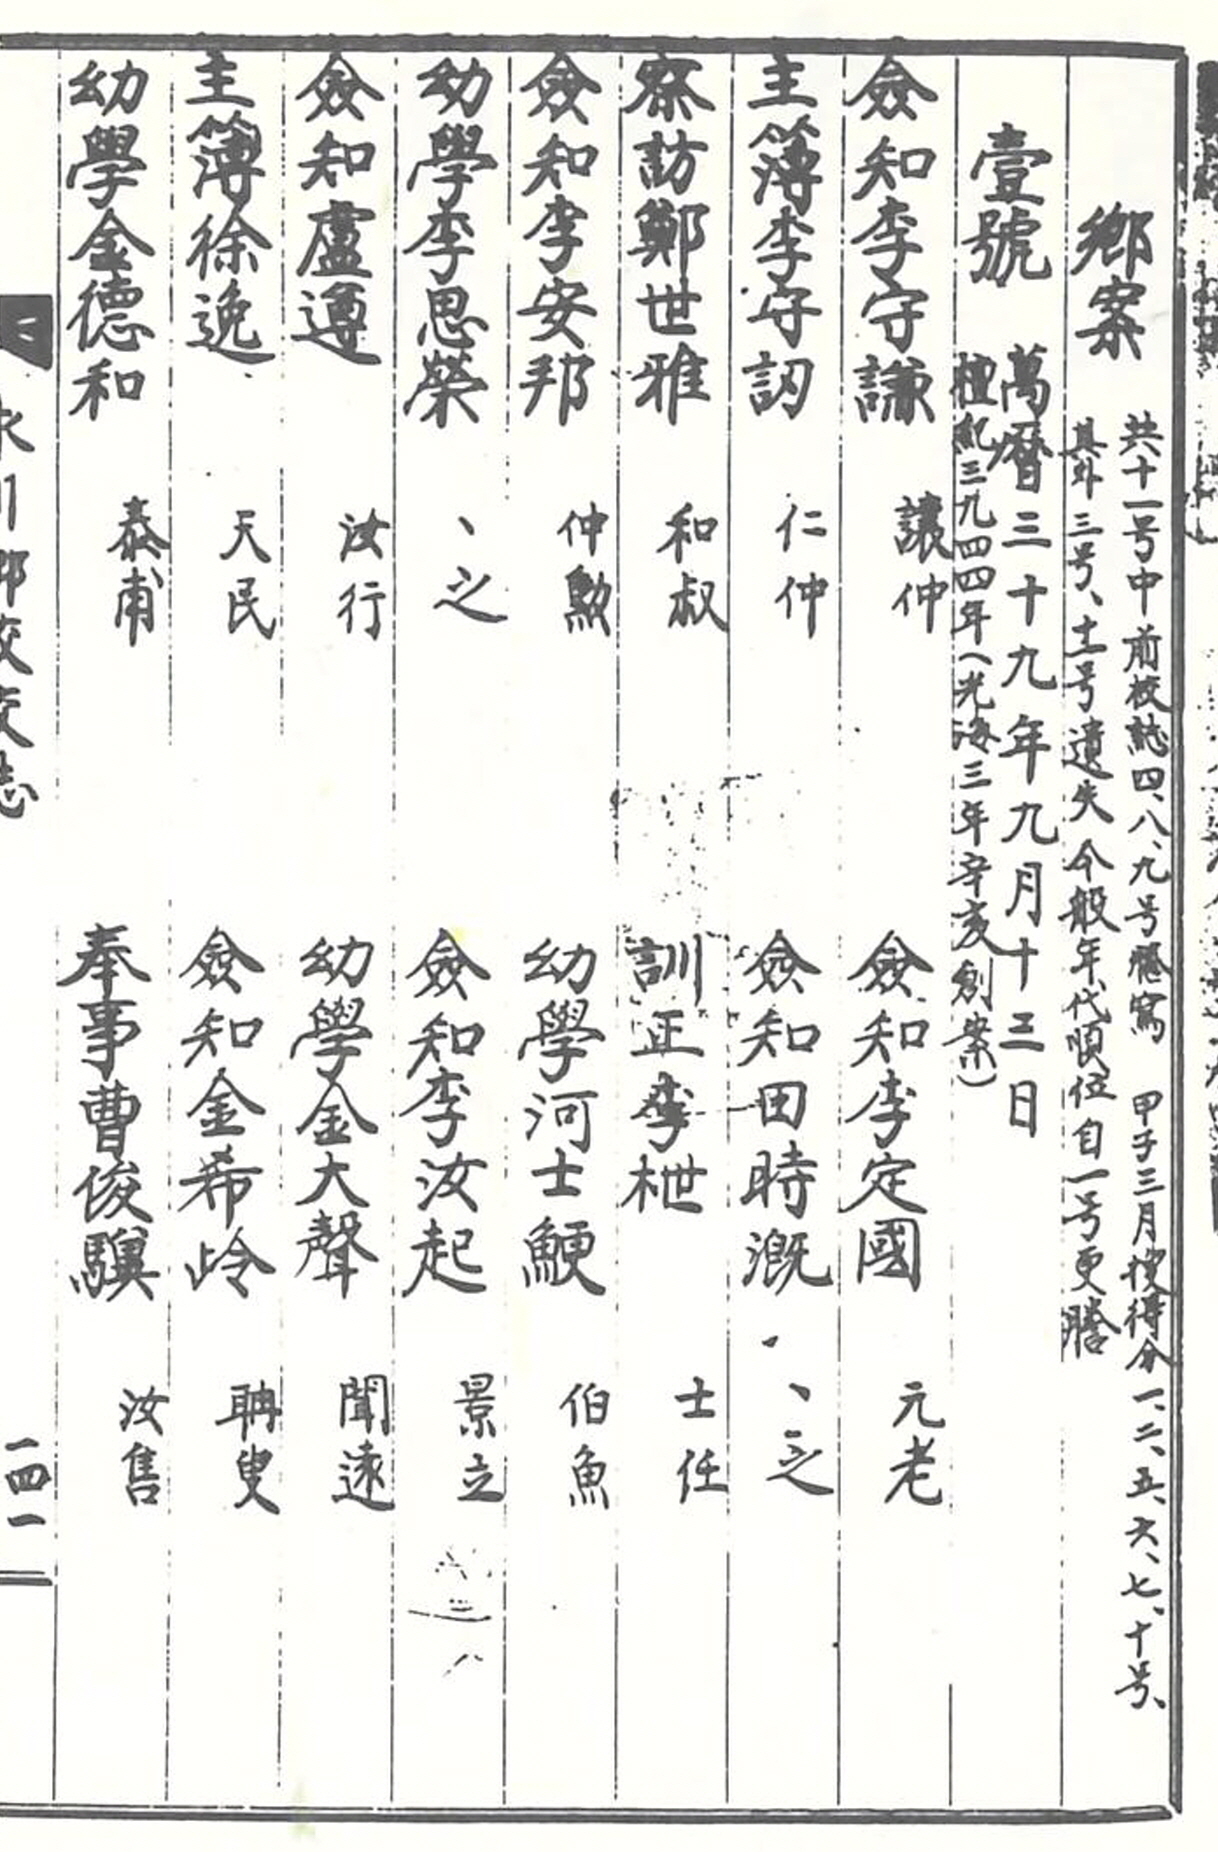 鄉案
共十一号中 前校誌四、八、九号謄寫 甲子三月搜得分一、二、五、六、七、十号、
其外三号、土号遺失 今般年代順位自一号更謄
壹號 萬曆三十九年九月十三日
檀紀三九四四年(光海三年辛亥創案)
僉知李守謙 讓仲 僉知李定國 元老
主簿李守訒 仁仲 僉知田時溉 、之
察訪鄭世雅 和叔 訓正李枻 士任
僉知李安邦 仲勳 幼學河士鯁 伯魚
幼學李思榮 、之 僉知李汝起 景立
僉知盧遵 汝行 幼學金大聲 聞遠
主簿徐逸 天民 僉知金希岭 聃叟
幼學金德和 泰甫 奉事曹俊驥 汝售
永川鄉校校誌
一四一